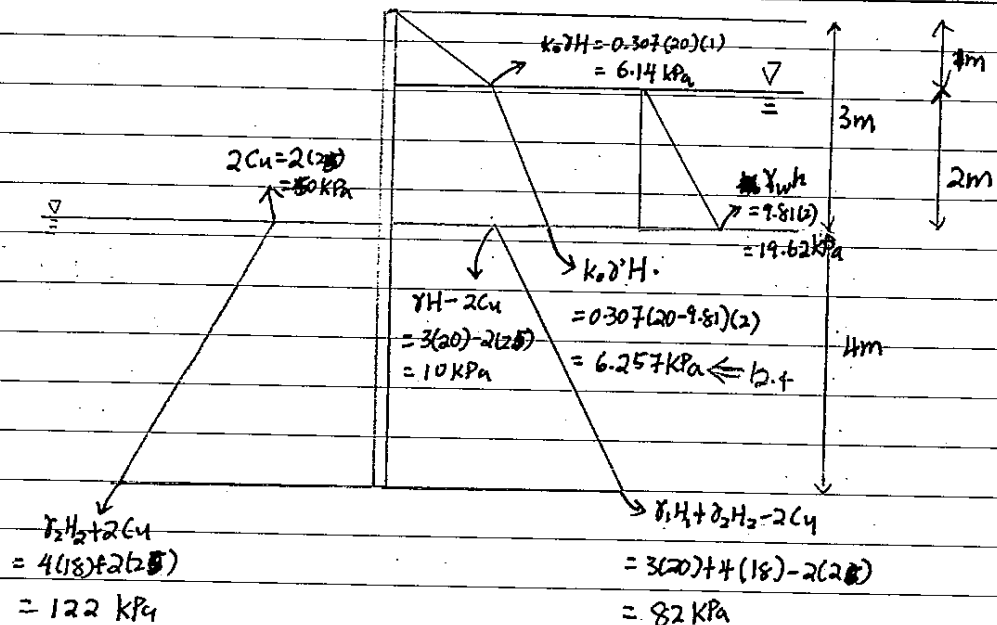 k₀γH = 0.307(20)(1)
= 6.14 kPa
1m
3m
2Cu = 2(25)
= 50 kPa
2m
γwh
= 9.81(2)
= 19.62 kPa
k₀γ'H.
= 0.307(20-9.81)(2)
= 6.257 kPa ⇐ 12.4
γH - 2Cu
= 3(20) - 2(25)
= 10 kPa
4m
γ₂H₂ + 2Cu
= 4(18) + 2(25)
= 122 kPa
γ₁H₁ + γ₂H₂ - 2Cu
= 3(20) + 4(18) - 2(25)
= 82 kPa